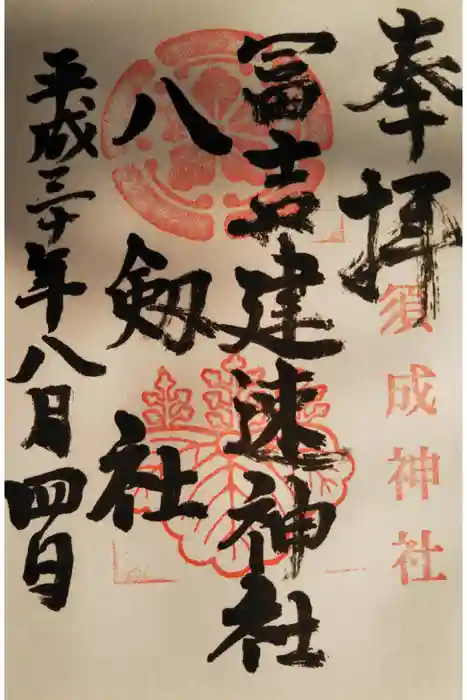 奉拝
須成神社
冨吉建速神社
八劔社
平成三十年八月四日